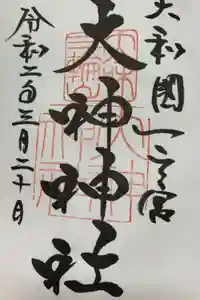 大和國一之宮
大神神社
令和二年三月二十日